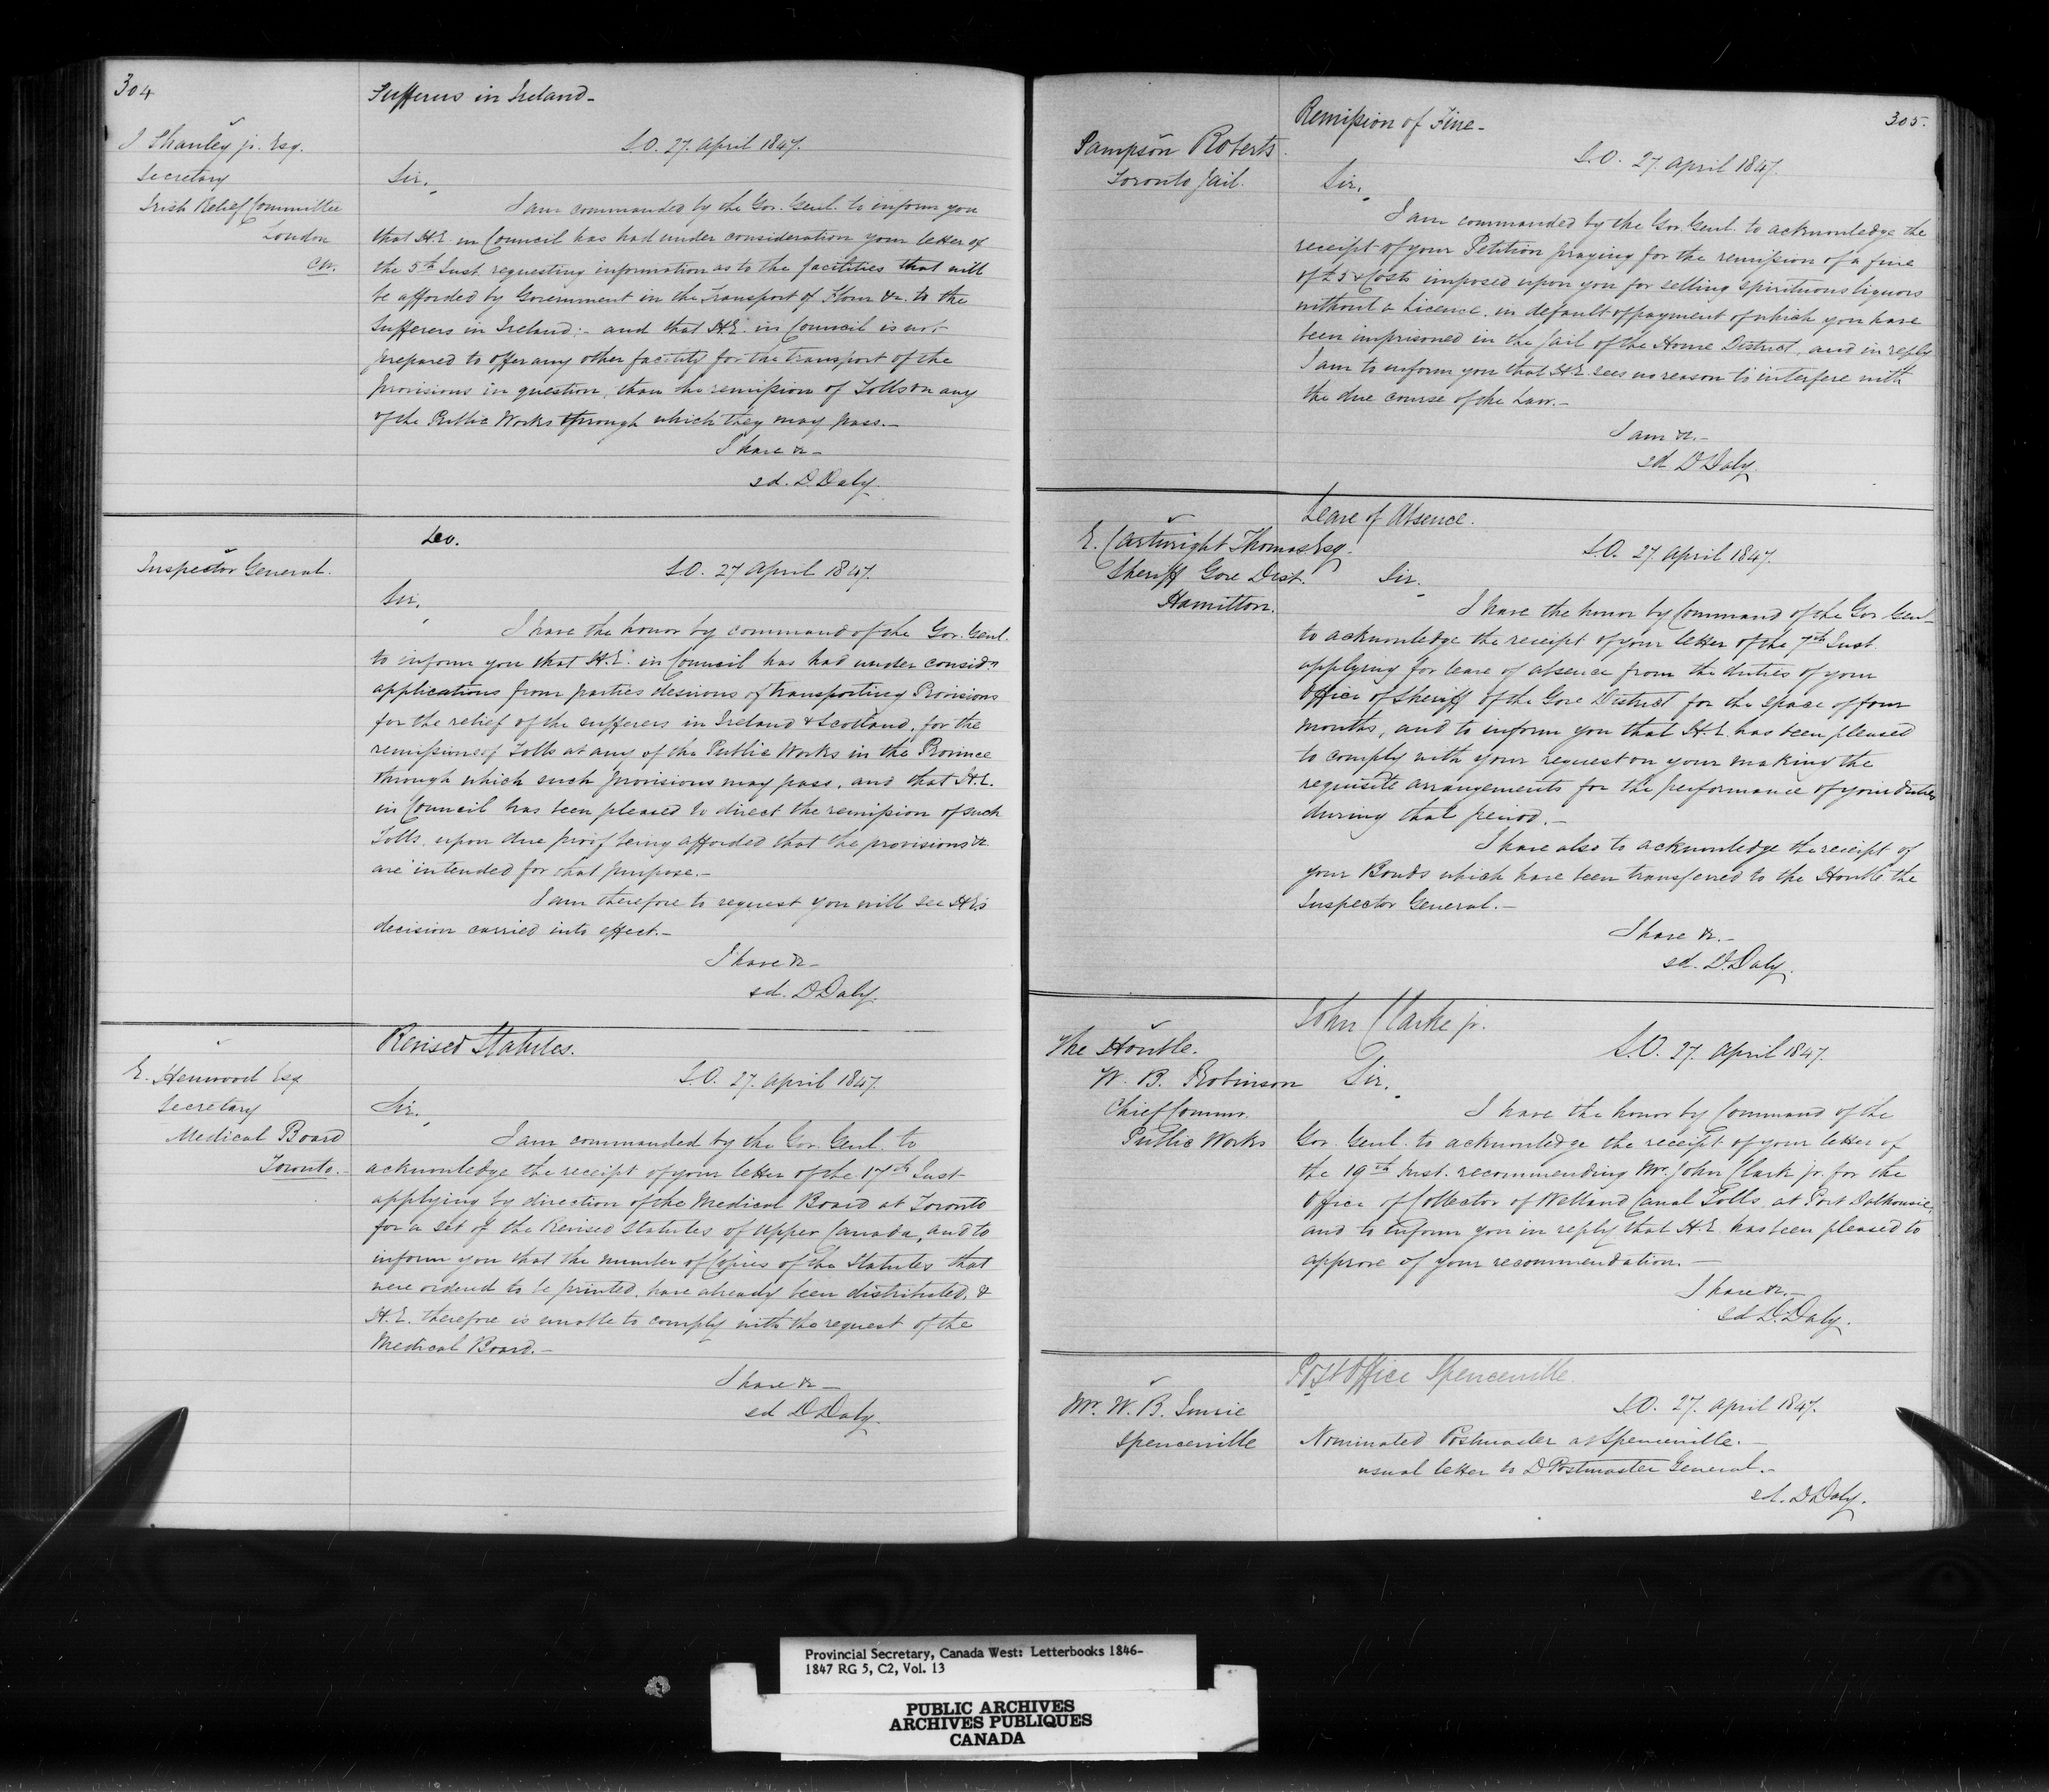 304
Sufferers in Ireland-
J Shanley jr. Esq.
Secretary
Irish Relief Committee
London
C.W.
S.O. 27. April 1847.
Sir,
I am commanded by the Gov. Genl. to inform you
that H.E. in Council has had under consideration your letter of
the 5th Inst. requesting information as to the facilities that will
be afforded by Government in the Transport of Flour &c. to the
Sufferers in Ireland:- and that H.E. in Council is not
prepared to offer any other facility for the transport of the
provisions in question, than the remission of Tolls on any
of the Public Works through which they may pass.-
I have &c-
sd. D. Daly.
Do.
Inspector General.
S.O. 27 April 1847.
Sir,
I have the honor by command of the Gov. Genl.
to inform you that H.E. in Council has had under considn
applications from parties desirous of transporting Provisions
for the relief of the sufferers in Ireland & Scotland, for the
remission of Tolls at any of the Public Works in the Province
through which such provisions may pass, and that H.E.
in Council has been pleased to direct the remission of such
Tolls, upon due proof being afforded that the provisions &c
are intended for that purpose.-
I am therefore to request you will see H.E's
decision carried into effect.-
I have &c-
sd. D Daly.
Revised Statutes.
E. Henwood Esq
Secretary
Medical Board
Toronto.-
S.O. 27. April 1847.
Sir,
I am commanded by the Gov. Genl. to
acknowledge the receipt of your letter of the 17th Inst
applying by direction of the Medical Board at Toronto
for a set of the Revised Statutes of Upper Canada, and to
inform you that the number of Copies of the Statutes that
were ordered to be printed, have already been distributed, &
H.E. therefore is unable to comply with the request of the
Medical Board.-
I have &c-
sd D Daly.
305.
Remission of Fine-
Sampson Roberts.
Toronto Jail.
S.O. 27 April 1847.
Sir,
I am commanded by the Gov. Genl. to acknowledge the
receipt of your Petition praying for the remission of a fine
of £5 & Costs imposed upon you for selling spirituous liquors
without a Licence, in default of payment of which you have
been imprisoned in the Jail of the Home District, and in reply
I am to inform you that H.E. sees no reason to interfere with
the due course of the Law.-
I am &c.-
sd D Daly.
Leave of Absence.
E. Cartwright Thomas Esq.
Sheriff Gore Dist.
Hamilton.
S.O. 27. April 1847.
Sir,
I have the honor by Command of the Gov Genl
to acknowledge the receipt of your letter of the 7th Inst.
applying for leave of absence from the duties of your
Office of Sheriff of the Gore District for the space of four
months, and to inform you that H.E. has been pleased
to comply with your request on your making the
requisite arrangements for the performance of your duties
during that period.-
I have also to acknowledge the receipt of
your Bonds which have been transferred to the Honble the
Inspector General.-
I have &c.-
sd. D. Daly.
John Clarke jr.
The Honble.
W. B. Robinson
Chief Commr.
Public Works
S.O. 27. April 1847.
Sir,
I have the honor by Command of the
Gov. Genl. to acknowledge the receipt of your letter of
the 19th Inst. recommending Mr. John Clark jr. for the
Office of Collector of Welland Canal Tolls, at Port Dalhousie,
and to inform you in reply that H.E. has been pleased to
approve of your recommendation.-
I have &c.-
sd D. Daly.
Post Office Spencerville
Mr. W. B. Imrie
Spencerville
S.O. 27. April 1847.
Nominated Postmaster at Spencerville.-
usual letter to D Postmaster General.-
sd. D Daly.
Provincial Secretary, Canada West: Letterbooks 1846-
1847 RG 5, C2, Vol. 13
PUBLIC ARCHIVES
ARCHIVES PUBLIQUES
CANADA